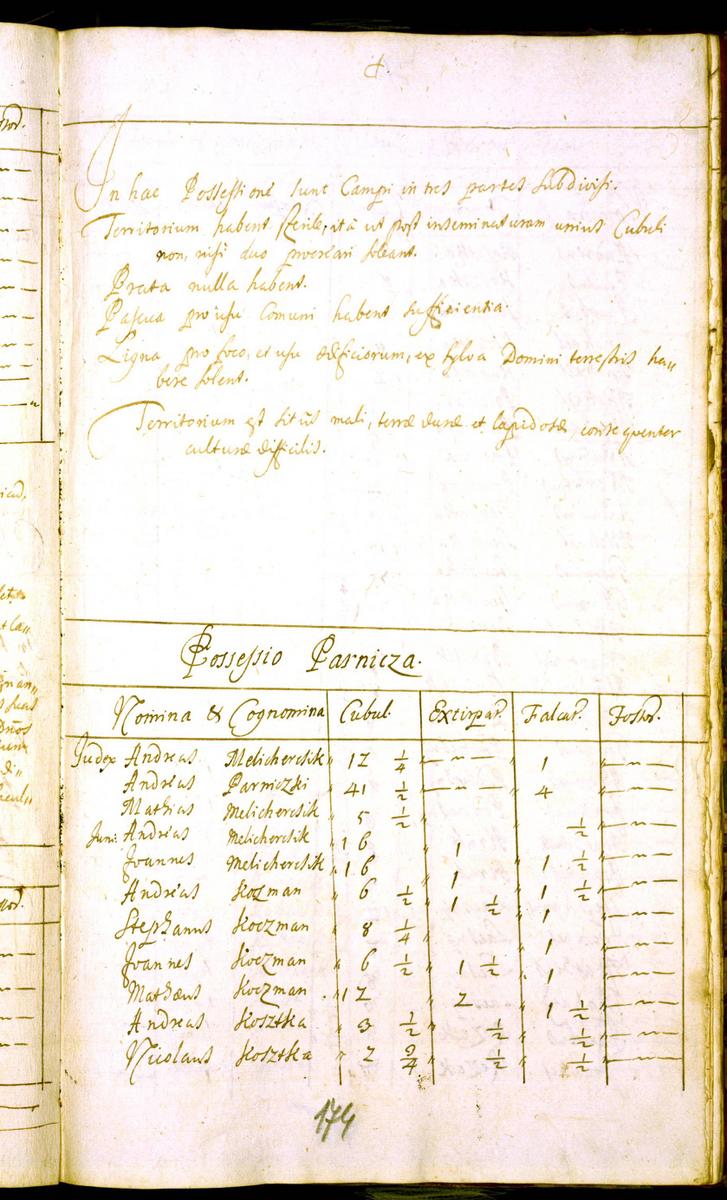 In hac Possessione sunt Campi in tres partes subdivisi.
Territorium habent sterile, ità ut post inseminaturam unius Cubuli
non, nisi duo procreari soleant.
Prata nulla habent.
Pascua pro usu Comuni habent sufficientia.
Ligna pro foco, et usu ædificiorum, ex sylva Domini terrestris ha„
bere solent.
Territorium est sitûs mali, terræ duræ et lapidosæ, consequenter
culturæ difficilis.
Possessio Parnicza.
Nomina & Cognomina Cubul. Extirpat. Falcat. Fossor.
Judex Andreas Melichercsik „ 12 1/4 „ — „ — „ 1 „ — „ —
Andreas Parniczki „ 41 1/2 „ — „ — „ 4 „ — „ —
Mathias Melichercsik „ 5 1/2 „ „ 1/2 „ — „ —
Juni: Andreas Melichercsik „ 16 „ 1 „ 1 1/2 „ — „ —
Joannes Melichercsik „ 16 „ 1 „ 1 1/2 „ — „ —
Andreas Kozman „ 6 1/2 „ 1 1/2 „ 1 „ — „ —
Stephanus Koczman „ 8 1/4 „ „ 1 „ — „ —
Joannes Koczman „ 6 1/2 „ 1 1/2 „ 1 „ — „ —
Mathæus Koczman „ 12 „ 2 „ 1 1/2 „ — „ —
Andreas Kosztka „ 3 1/2 „ 1/2 „ 1/2 „ — „ —
Nicolaus Kosztka „ 2 3/4 „ 1/2 „ 1/2 „ — „ —
174